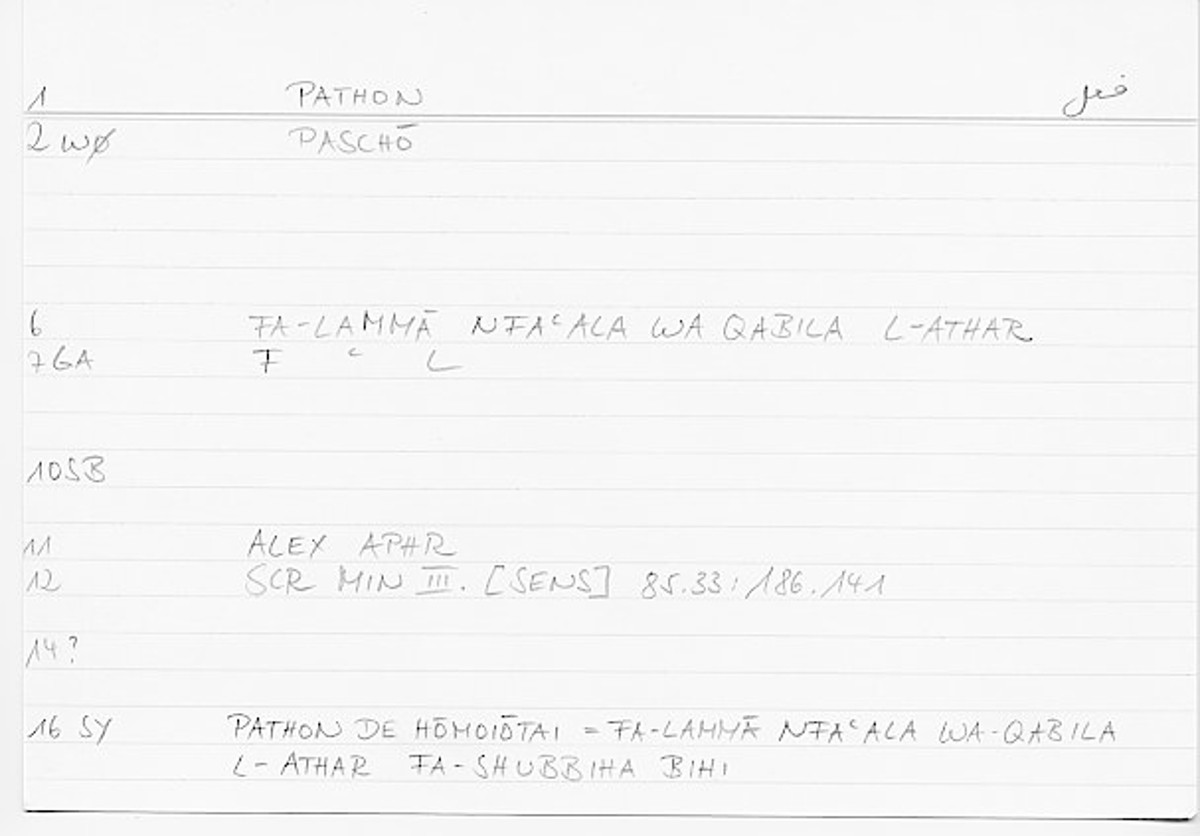 1 PATHON فعل
2 WØ PASCHŌ
6 FA-LAMMĀ NFAʿALA WA QABILA L-ATHAR
7 GA F ʿ L
10 SB
11 ALEX APHR
12 SCR MIN III. [SENS] 85.33; 186.141
14 ?
16 SY PATHON DE HŌMOIŌTAI = FA-LAMMĀ NFAʿALA WA-QABILA
L-ATHAR FA-SHUBBIHA BIHI